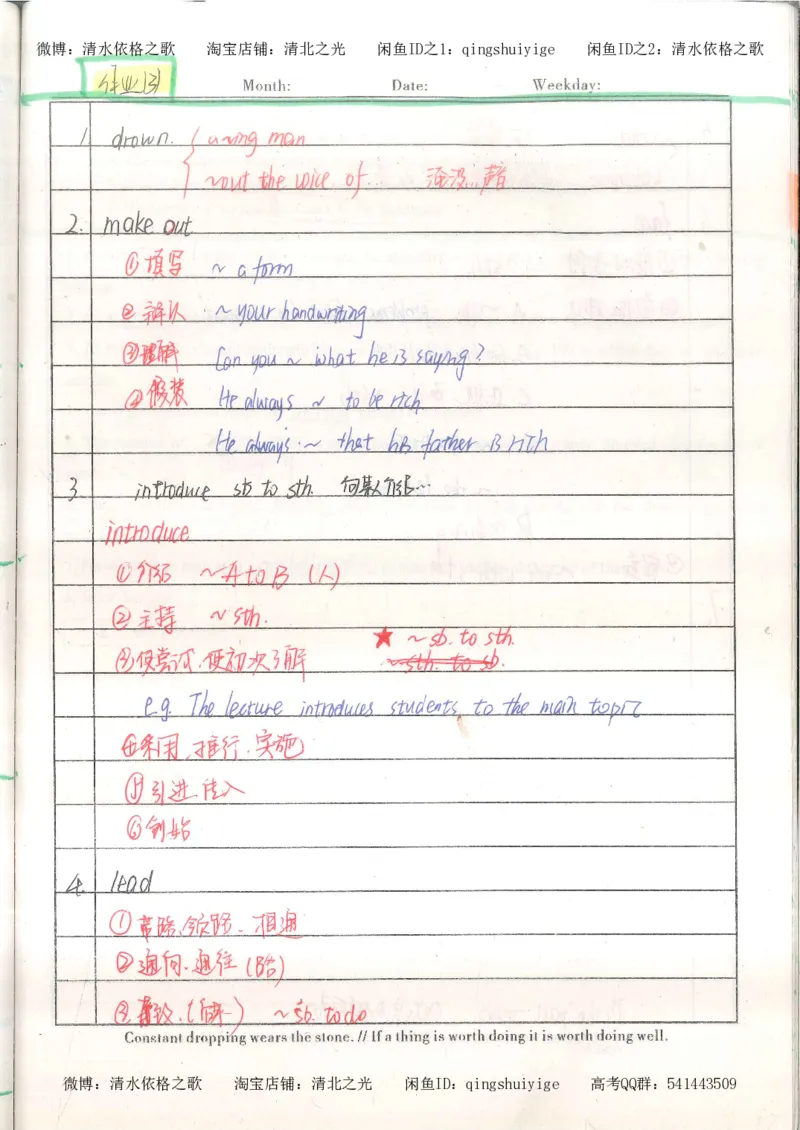 微博：清水依格之歌 淘宝店铺：清北之光 闲鱼ID之1：qingshuiyige 闲鱼ID之2：清水依格之歌
作业(3)
Month: Date: Weekday:
1. drown. { a ~ing man
~out the voice of... 淹没...声音
2. make out
①填写 ~ a form
②辨认 ~ your handwriting
③理解 Can you ~ what he is saying?
④假装 He always ~ to be rich
He always ~ that his father is rich
3. introduce sb to sth. 向某人介绍...
introduce
①介绍 ~A to B (人)
②主持 ~ sth.
★ ~sb. to sth.
③使尝试.使初次了解 ~sth. to sb.
e.g. The lecture introduces students to the main topic
④采用.推行.实施
⑤引进.传入
⑥创始
4. lead
①带路.领路.相通
②通向.通往(路)
③导致. ~ sb. to do
Constant dropping wears the stone. // If a thing is worth doing it is worth doing well.
微博：清水依格之歌 淘宝店铺：清北之光 闲鱼ID：qingshuiyige 高考QQ群：541443509